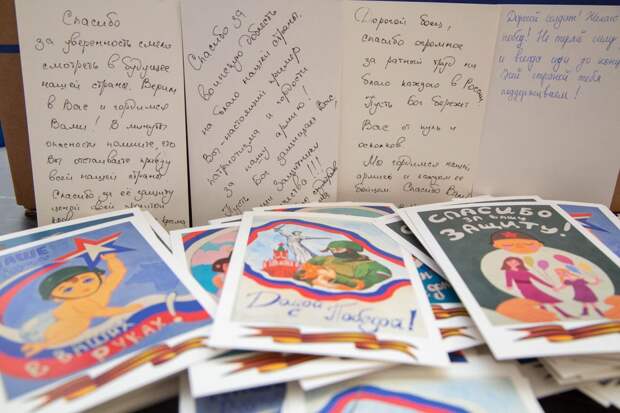 Спасибо
за уверенность смело
смотреть в будущее
нашей стране. Верим
в Вас и гордимся
Вами! В минуты
опасности помните, что
Вы отстаиваете правду
всей нашей страны
Спасибо за её защиту
ценой своей
Спасибо за
воинскую доблесть
на благо нашей страны.
Вы - настоящий пример
патриотизма и гордости
за нашу армию!
Пусть Бог защищает Вас,
Дорогой боец,
спасибо огромное
за ратный труд на
благо каждого в России
Пусть Бог бережет
Вас от пуль и
осколков.
Мы гордимся нашей
армией и каждым ее
бойцом. Спасибо Вам
Дорогой солдат! Желаю
побед! Не теряй силу
и всегда иди до конца
тебя
поддерживаем!
В ВАШИХ
РУКАХ!
Домой
с Победой!
СПАСИБО
ЗА ВАШУ
ЗАЩИТУ!